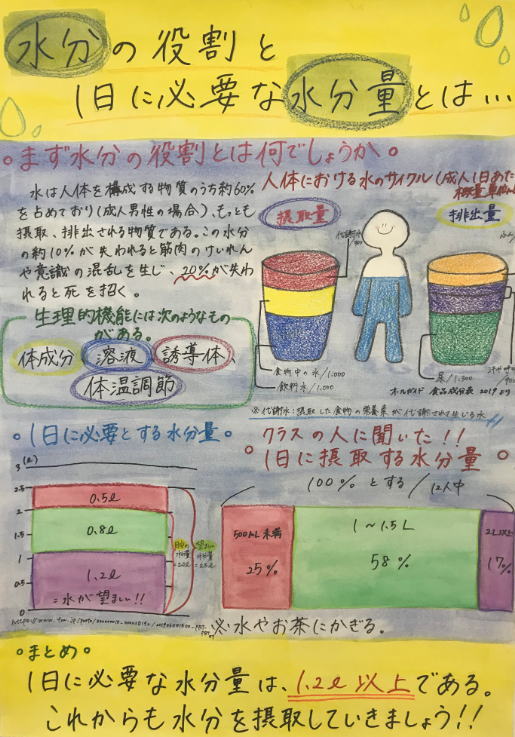 水分の役割と
1日に必要な水分量とは…
。まず水分の役割とは何でしょうか。
水は人体を構成する物質のうち約60%
を占めており(成人男性の場合)、もっとも
摂取、排出される物質である。この水分
の約10%が失われると筋肉のけいれん
や意識の混乱を生じ、20%が失わ
れると死を招く。
生理的機能には次のようなもの
がある。
体成分 溶液 誘導体、
体温調節
人体における水のサイクル(成人1日あた
概量
摂取量
排出量
代謝水
食物中の水/1.000
飲料水/1.000
尿/1.500
オールガイド 食品成分表 2019より
※代謝水:摂取した食物の栄養素が代謝されて生じる水
。1日に必要とする水分量。
3 (ℓ)
2.5
2
1.5
1
0.5
0
0.5ℓ
0.8ℓ
1.2ℓ
=水が望ましい!!
。クラスの人に聞いた!!
1日に摂取する水分量。
100%とする/12人中
500mL未満
25%
1〜1.5L
58%
2L以上
17%
※水やお茶にかぎる。
。まとめ。
1日に必要な水分量は、1.2ℓ以上である。
これからも水分を摂取していきましょう!!